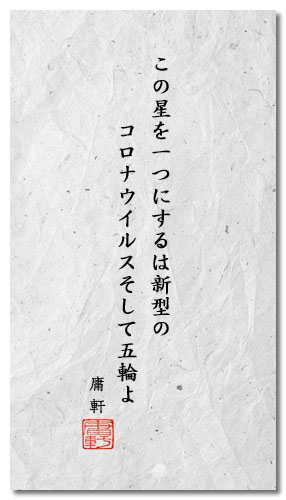 この星を一つにするは新型の
コロナウイルスそして五輪よ
庸軒